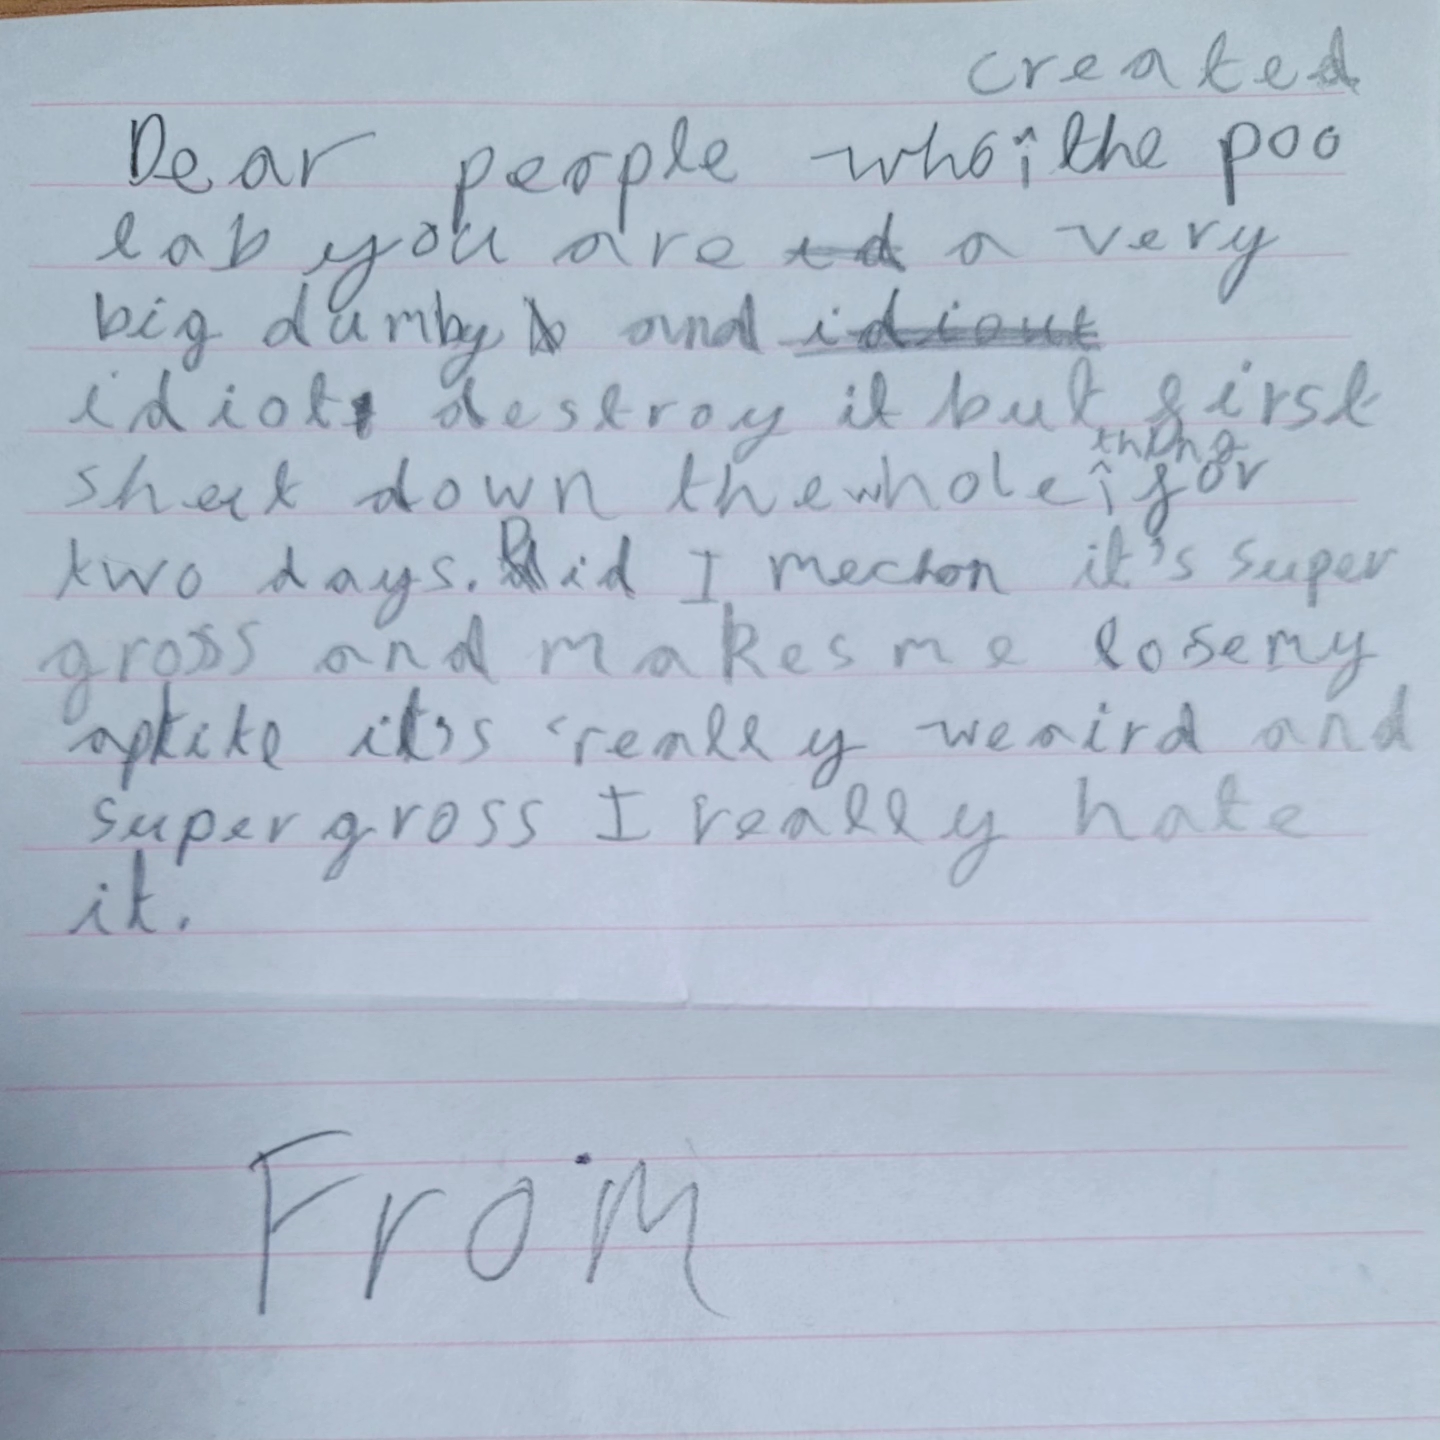 created
Dear people who the poo
lab you are a very
big dumby and idiout
idiot destroy it but first
thing
shut down the whole for
two days. Did I mecton it's super
gross and makes me lose my
aptite it's really weaird and
super gross I really hate
it.
From